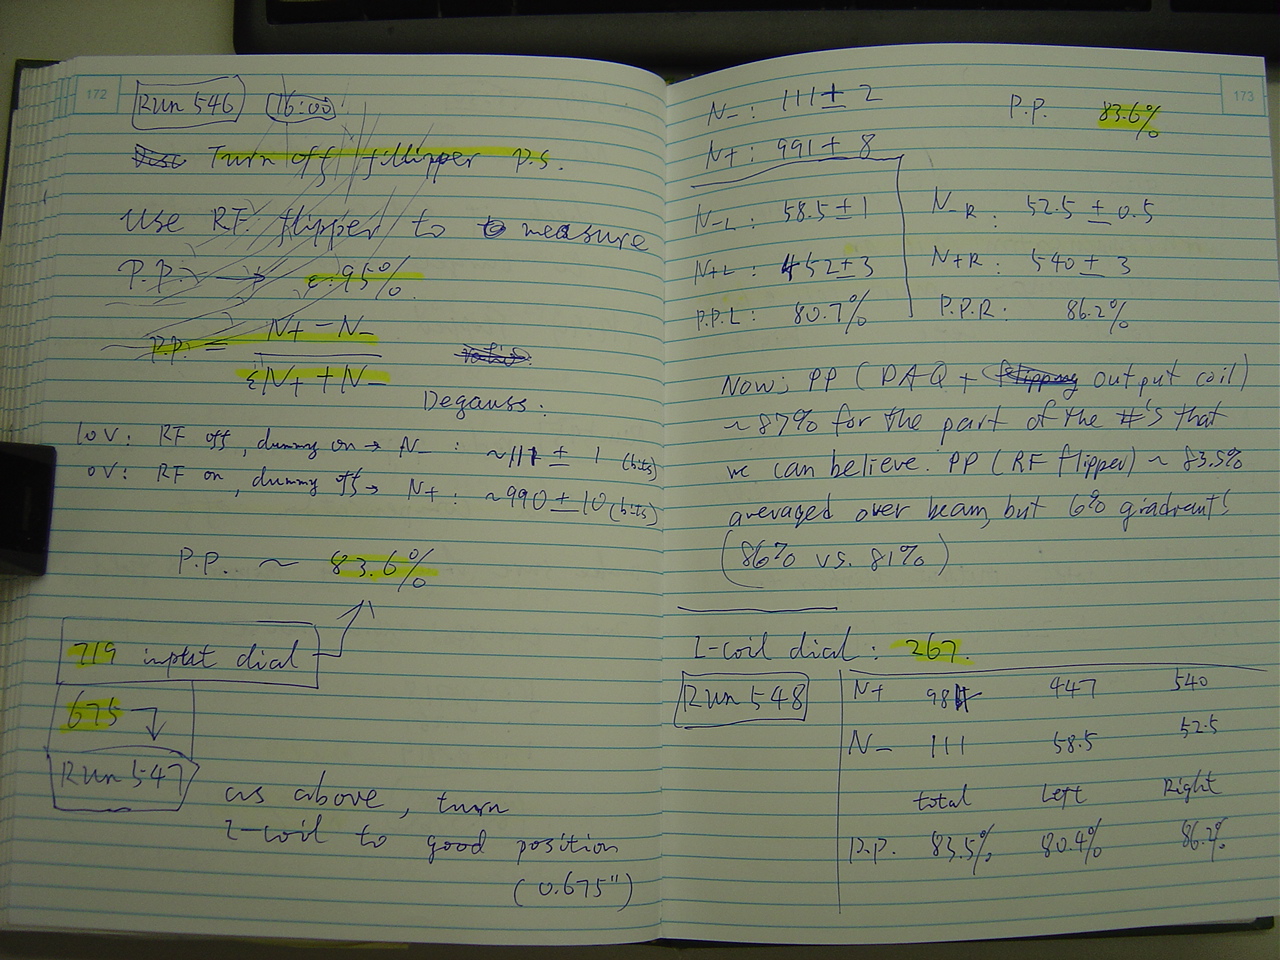 172
Run 546 16:00
Turn off flipper p.s.
Use RF flipper to measure
P.P. → ε: 95%
P.P. = N+ - N-
εN+ + N-
Degauss:
10V: RF off, dummy on → N- : ~111 ± 1 (bits)
0V: RF on, dummy off → N+ : ~990 ± 10 (bits)
P.P. ~ 83.6%
719 input dial
675
Run 547
as above, turn
I-coil to good position
(0.675")
173
N- : 111 ± 2 P.P. 83.6%
N+ : 991 ± 8
N-L : 58.5 ± 1 N-R : 52.5 ± 0.5
N+L : 452 ± 3 N+R : 540 ± 3
P.P.L : 80.7% P.P.R : 86.2%
Now: PP (DAQ + output coil)
~ 87% for the part of the #'s that
we can believe. PP (RF flipper) ~ 83.5%
averaged over beam, but 6% gradient!
(86% vs. 81%)
I-coil dial : 267.
Run 548
N+ 981 447 540
N- 111 58.5 52.5
total Left Right
P.P. 83.5% 80.4% 86.2%